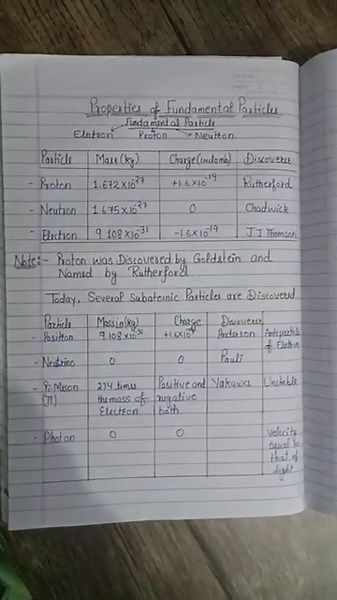 Properties of Fundamental Particles
Fundamental Particle
Electron Proton Neutron
Particle Mass (kg) Charge (coulomb) Discoverer
- Proton 1.672×10⁻²⁷ +1.6×10⁻¹⁹ Rutherford
- Neutron 1.675×10⁻²⁷ 0 Chadwick
- Electron 9.108×10⁻³¹ -1.6×10⁻¹⁹ J.J Thomson
Note:- Proton was Discovered by Goldstein and
Named by Rutherford
Today, Several Subatomic Particles are Discovered
Particle Mass in (kg) Charge Discoverer
- Positron 9.108×10⁻³¹ +1.6×10⁻¹⁹ Anderson Antiparticle
of Electron
- Neutrino 0 0 Pauli
- Pi Meson 274 times Positive and Yakawa Unstable
(π) the mass of negative
Electron both
- Photon 0 0 Velocity
equal to
that of
light